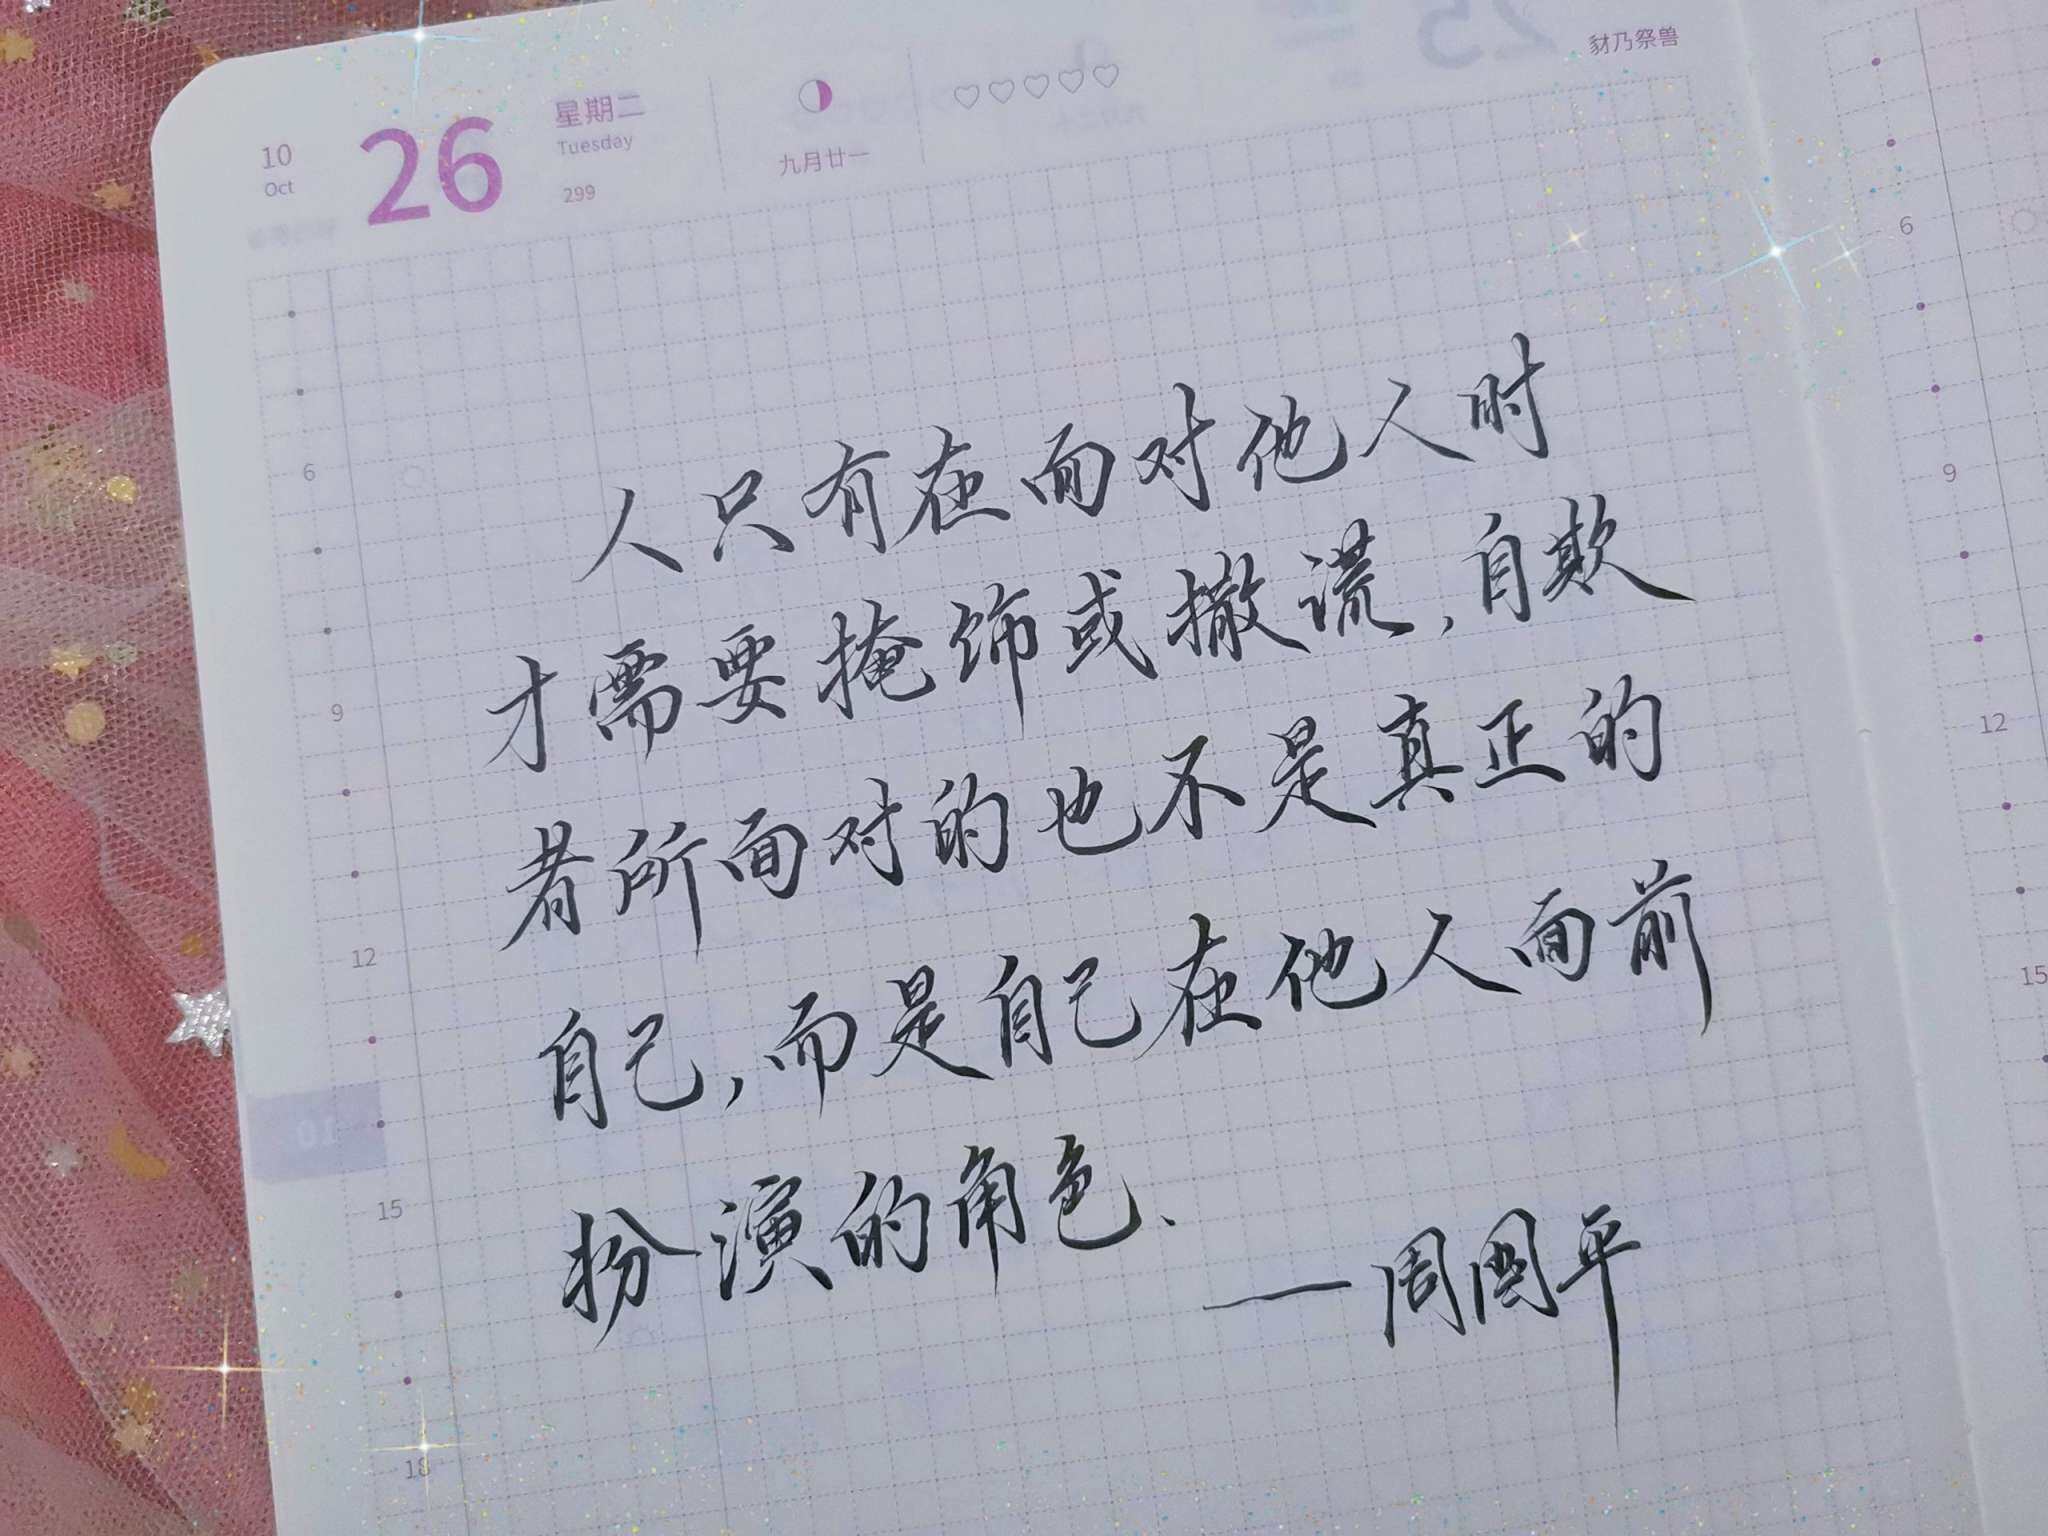 10
Oct
26
星期二
Tuesday
299
九月廿一
♡♡♡♡♡
豺乃祭兽
人只有在面对他人时
才需要掩饰或撒谎,自欺
者所面对的也不是真正的
自己,而是自己在他人面前
扮演的角色、
——周国平
6
9
12
15
18
10
25
6
9
12
15